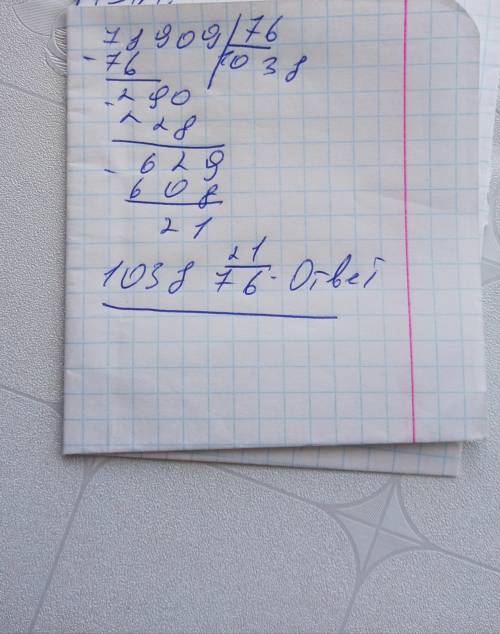 78909 76
- 76 1038
- 290
228
- 629
608
21
1038 21/76 - Ответ